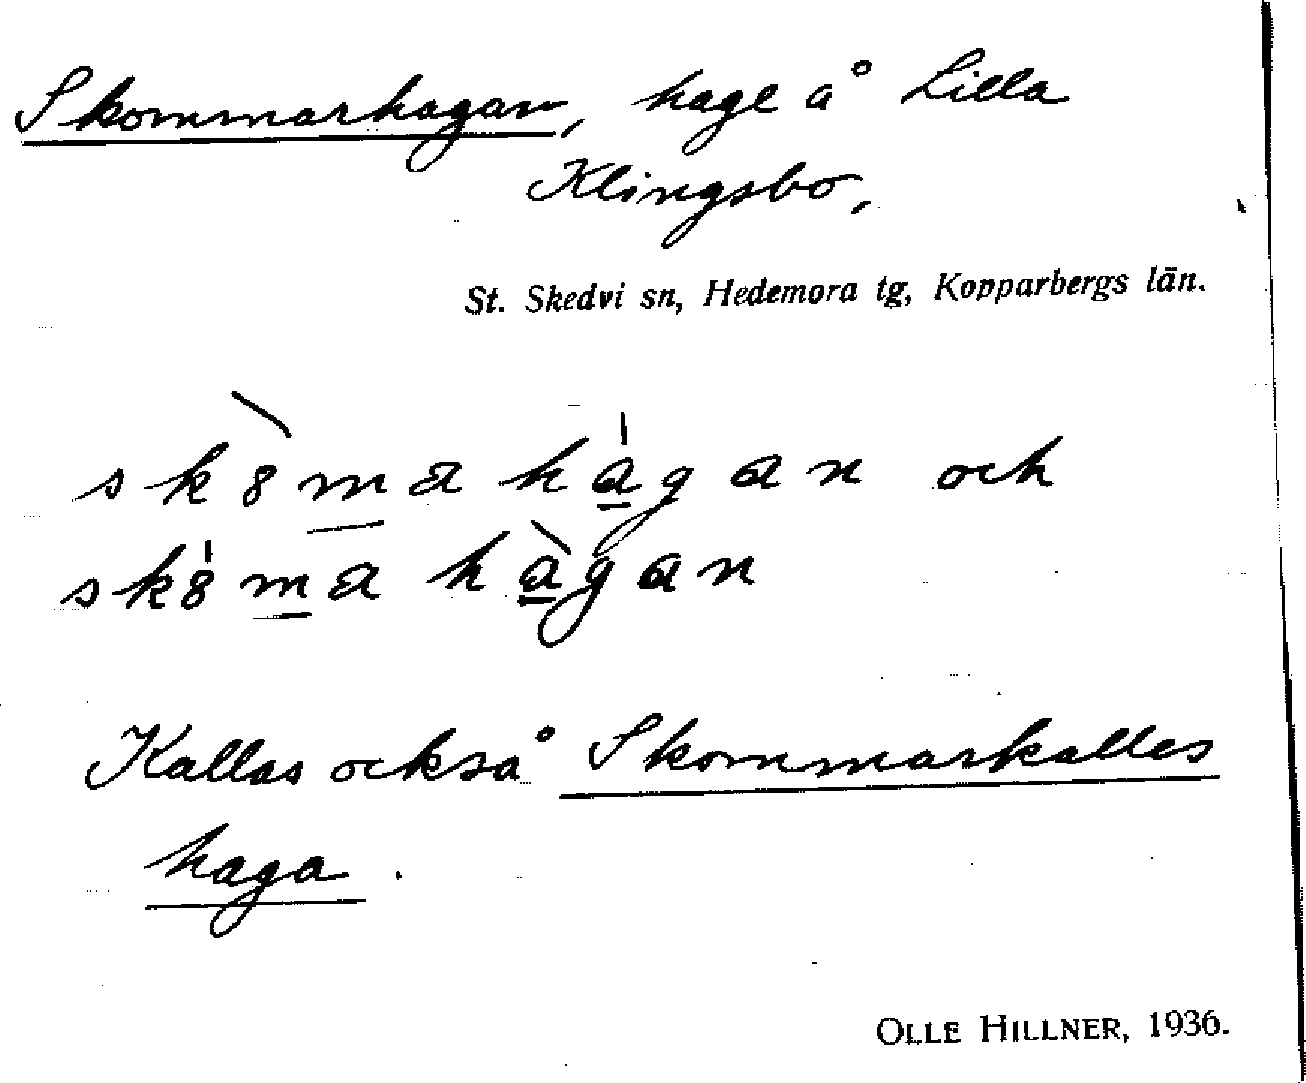 Skommarhagan, hage å Lilla
Klingsbo,
St. Skedvi sn, Hedemora tg, Kopparbergs län.
sk8̀m̲a ha̲̍gan och
sk8̍m̲a hà̲gan
Kallas också Skommarkalles
haga.
OLLE HILLNER, 1936.